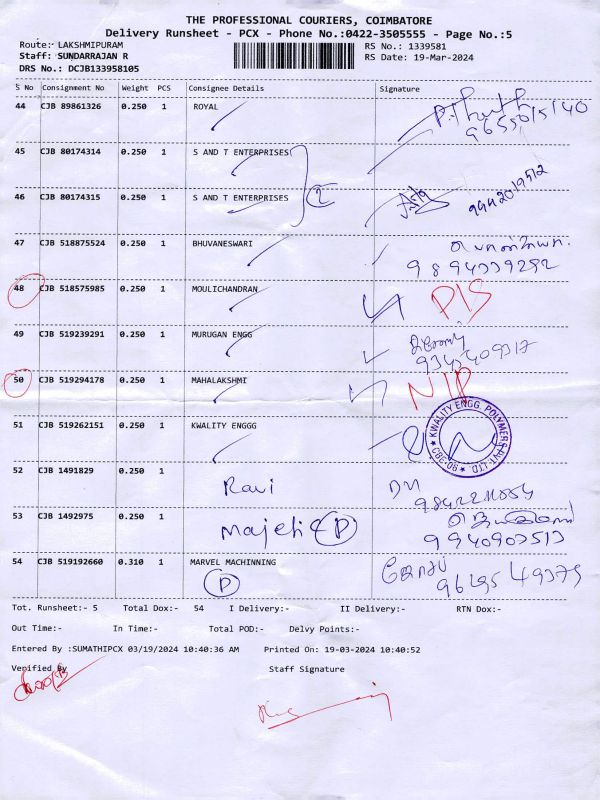 THE PROFESSIONAL COURIERS, COIMBATORE
Delivery Runsheet - PCX - Phone No.:0422-3505555 - Page No.:5
Route:- LAKSHMIPURAM
RS No.: 1339581
Staff: SUNDARRAJAN R
RS Date: 19-Mar-2024
DRS No.: DCJB133958105
S No Consignment No Weight PCS Consignee Details Signature
44 CJB 89861326 0.250 1 ROYAL
45 CJB 80174314 0.250 1 S AND T ENTERPRISES
46 CJB 80174315 0.250 1 S AND T ENTERPRISES 2
9942019512
47 CJB 518875524 0.250 1 BHUVANESWARI
9894339292
48 CJB 518575985 0.250 1 MOULICHANDRAN
49 CJB 519239291 0.250 1 MURUGAN ENGG
9345409317
50 CJB 519294178 0.250 1 MAHALAKSHMI
51 CJB 519262151 0.250 1 KWALITY ENGGG
KWALITY ENGG. POLYMERS PVT-LTD
52 CJB 1491829 0.250 1 Ravi
53 CJB 1492975 0.250 1 P
9940903513
54 CJB 519192660 0.310 1 MARVEL MACHINNING
P
Tot. Runsheet:- 5 Total Dox:- 54 I Delivery:- II Delivery:- RTN Dox:-
Out Time:- In Time:- Total POD:- Delvy Points:-
Entered By :SUMATHIPCX 03/19/2024 10:40:36 AM Printed On: 19-03-2024 10:40:52
Verified By
Staff Signature